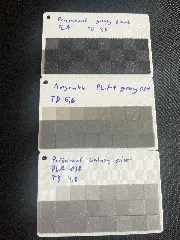 Prusament galaxy black
PLA TD 0,2
Anycubic PLA+ grey
TD 5,6
Prusament Galaxy silver
PLA
TD